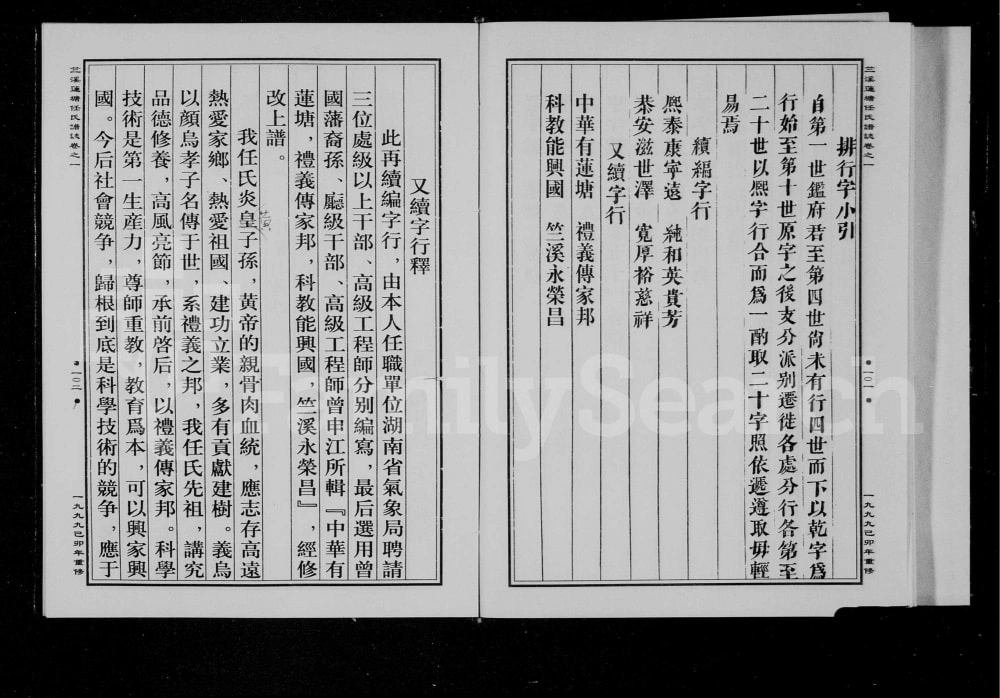 排行字小引
自第一世鑑府君至第四世尙未有行四世而下以乾字爲
行始至第十世原字之後支分派別遷徙各處分行各第至
二十世以熈字行合而爲一酌取二十字照依遞遵取毋輕
易焉
續編字行
熈泰康寧遠　純和英貴芳
恭安滋世澤　寬厚裕慈祥
又續字行
中華有蓮塘　禮義傳家邦
科教能興國　竺溪永榮昌
竺溪蓮塘任氏譜誌卷之一
一〇一
一九九九己卯年重修
又續字行釋
此再續編字行，由本人任職單位湖南省氣象局聘請
三位處級以上干部、高級工程師分别編寫，最后選用曾
國藩裔孫、廳級干部、高級工程師曾申江所輯『中華有
蓮塘，禮義傳家邦，科教能興國，竺溪永榮昌』，經修
改上譜。
我任氏炎皇子孫，黄帝的親骨肉血統，應志存高遠
熱愛家鄉、熱愛祖國、建功立業，多有貢獻建樹。義烏
以顔烏孝子名傳于世，系禮義之邦，我任氏先祖，講究
品德修養，高風亮節，承前啓后，以禮義傳家邦。科學
技術是第一生産力，尊師重教，教育爲本，可以興家興
國。今后社會競争，歸根到底是科學技術的競争，應于
竺溪蓮塘任氏譜誌卷之一
一〇二
一九九九己卯年重修
FamilySearch